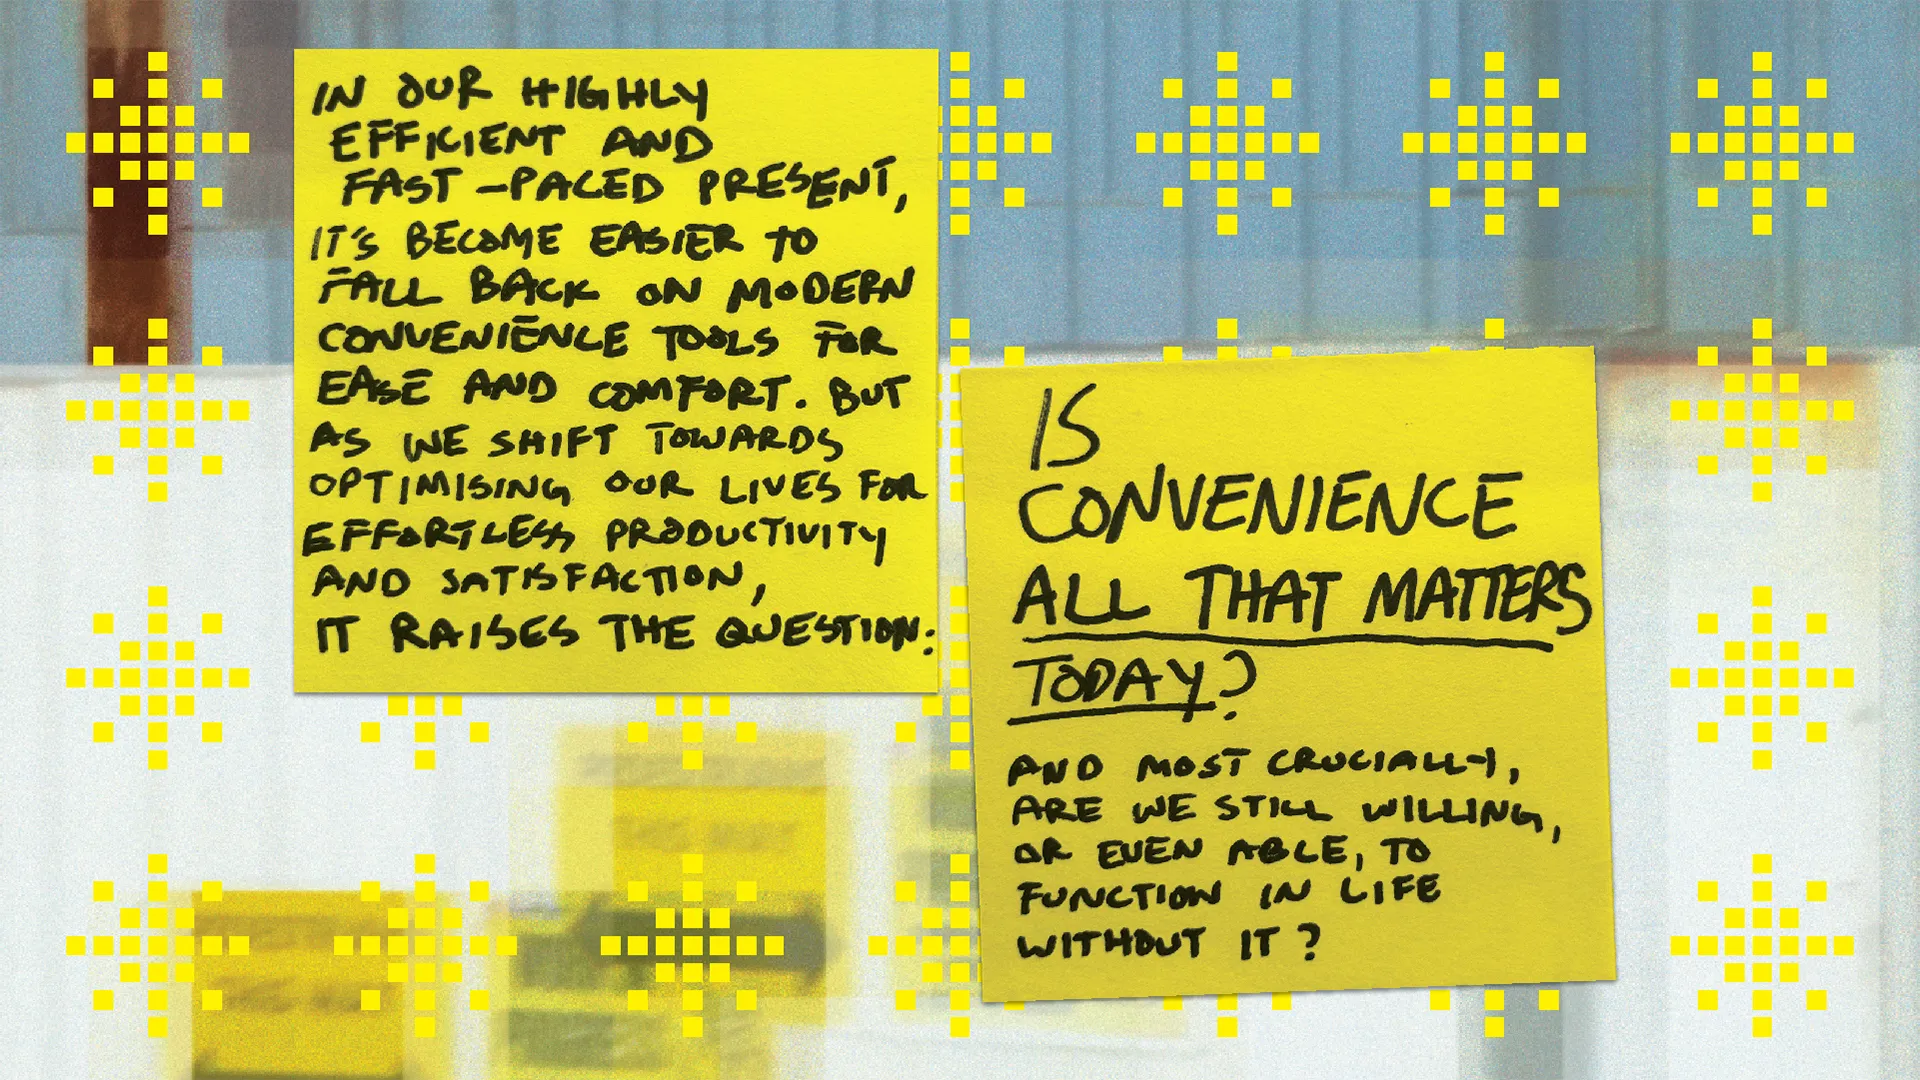 IN OUR HIGHLY
EFFICIENT AND
FAST-PACED PRESENT,
IT'S BECOME EASIER TO
FALL BACK ON MODERN
CONVENIENCE TOOLS FOR
EASE AND COMFORT. BUT
AS WE SHIFT TOWARDS
OPTIMISING OUR LIVES FOR
EFFORTLESS PRODUCTIVITY
AND SATISFACTION,
IT RAISES THE QUESTION:
IS
CONVENIENCE
ALL THAT MATTERS
TODAY?
AND MOST CRUCIALLY,
ARE WE STILL WILLING,
OR EVEN ABLE, TO
FUNCTION IN LIFE
WITHOUT IT?